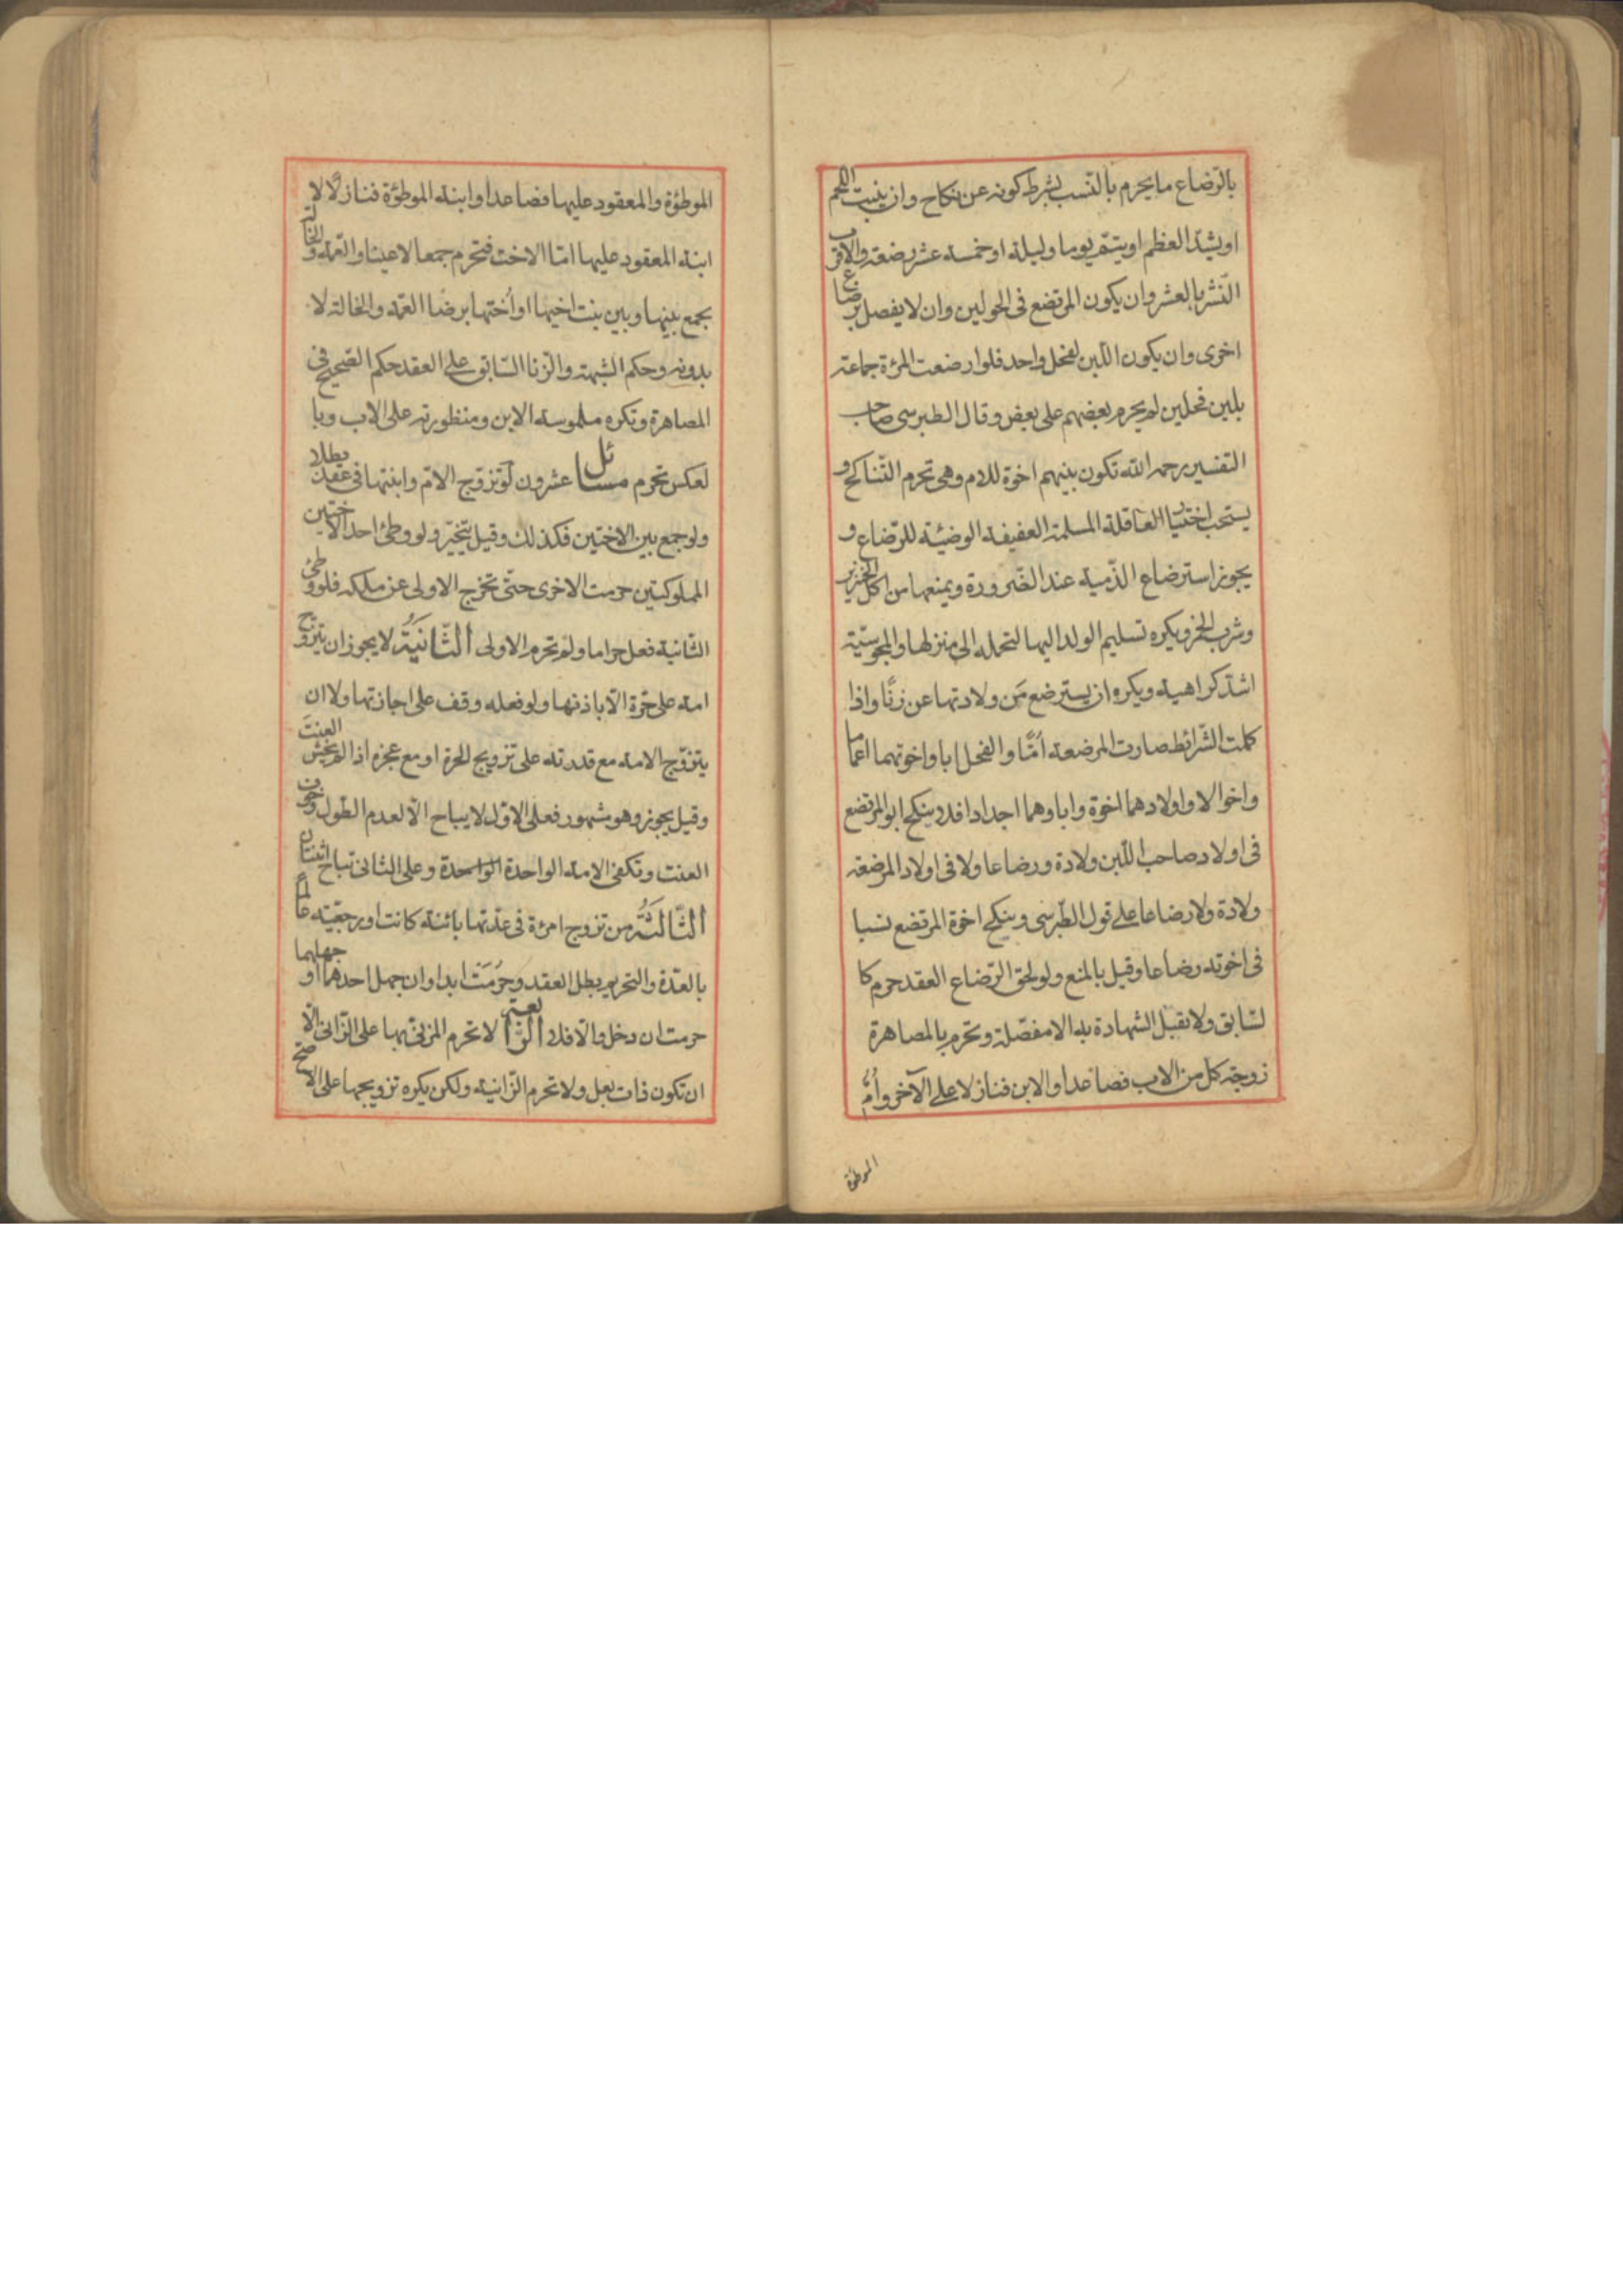 بالرّضاع ما يحرم بالنّسب بشرط كونه عن نكاح وان ينبت اللحم
او يشدّ العظم او يتمّ يوما وليلة او خمسة عشر رضعة والاقرب
النّشر بالعشر وان يكون المرتضع فى الحولين وان لا يفصل برضاع
اخرى وان يكون اللّبن لفحل واحد فلو ارضعت المرءة جماعة
بلبن فحلين لم يحرم بعضهم على بعض وقال الطبرسى صاحب
التفسير رحمه الله تكون بينهم اخوة للام وهى تحرم التّناكح و
يستحب اختيار العاقلة المسلمة العفيفة الوضيئة للرّضاع و
يجوز استرضاع الذّمية عند الضّرورة ويمنعها من اكل الخنزير
وشرب الخمر ويكره تسليم الولد اليها لتحمله الى منزلها والمجوسيّة
اشدّ كراهية ويكره ان يسترضع مَن ولادتها عن زنًا واذا
كملت الشّرائط صارت المرضعة اُمًّا والفحل ابا واخوتهما اعماما
واخوالا واولادهما اخوة واباوهما اجدادا فلا ينكح ابو المرتضع
فى اولاد صاحب اللّبن ولادة ورضاعا ولا فى اولاد المرضعة
ولادة ولا رضاعا على قول الطّبرسى وينكح اخوة المرتضع نسبا
فى اخوته رضاعا وقيل بالمنع ولو لحق الرّضاع العقد حرم كا
لسّابق ولا تقبل الشهادة به الا مفصّلة وتحرم بالمصاهرة
زوجة كل من الاب فصاعدا والابن فنازلا على الآخر واُمُّ
الموطؤة
الموطؤة والمعقود عليها فصاعدا وابنة الموطؤة فنازلًا لا
ابنة المعقود عليها امّا الاخت فتحرم جمعا لا عينا والعمّة والخالة
يجمع بينها وبين بنت اخيها او اُختها برضا العمّة والخالة لا
بدونه وحكم الشبهة والزّنا السّابق على العقد حكم الصّحيح فى
المصاهرة وتكره ملموسة الابن ومنظورته على الاب وبا
لعكس تحرم مسائل عشرون لو تزوج الامّ وابنتها فى عقد بطلا
ولو جمع بين الاختين فكذلك وقيل يتخيّر ولو وطئ احد الاختين
المملوكتين حرمت الاخرى حتّى تخرج الاولى عن ملكه فلو وطئ
الثّانية فعل حراما ولم تحرم الاولى الثّانِيَةُ لا يجوز ان يتزوّج
امة على حرّة الّا باذنها ولو فعله وقف على اجازتها ولا ان
يتزوّج الامة مع قدرته على تزويج الحرة او مع عجزه اذا لم يخش العنتَ
وقيل يجوز وهو مشهور فعلى الاوّل لا يباح الّا لعدم الطّول وخوف
العنت وتكفى الامة الواحدة الواحدة وعلى الثانى تباح اثنتان
الثّالثَةُ من تزوج امرءة فى عدّتها بائنة كانت او رجعيّة عالما
بالعدّة والتحريم بطل العقد وحَرُمَت ابدا وان جهل احدهما او جهلهما
حرمت ان دخل والّا فلا الرّابعة لا تحرم المزنىّ بها على الزّانى الّا
ان تكون ذات بعل ولا تحرم الزّانية ولكن يكره تزويجها على الاصحّ